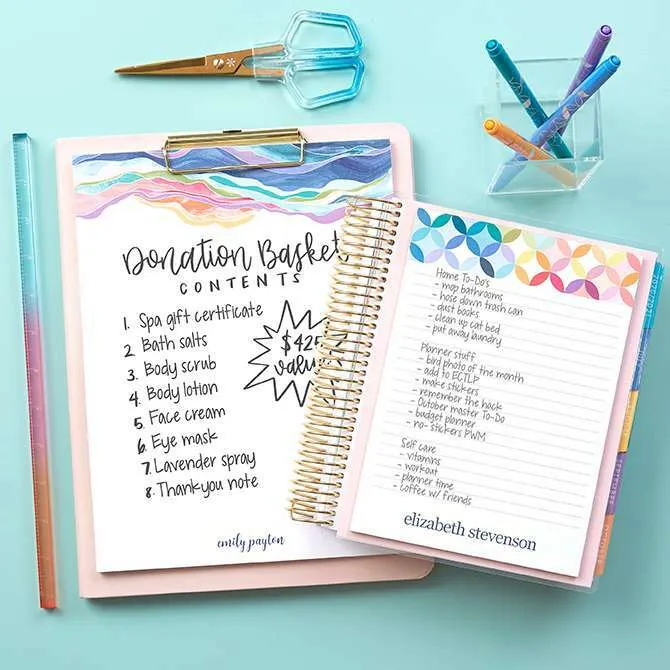 Donation Basket
CONTENTS
1. Spa gift certificate
2. Bath salts
3. Body scrub
4. Body lotion
5. Face cream
6. Eye mask
7. Lavender spray
8. Thank you note
$425
value
emily payton
Home To-Do's
- mop bathrooms
- hose down trash can
- dust books
- clean up cat bed
- put away laundry
Planner stuff
- bird photo of the month
- add to ECTLP
- make stickers
- remember the hack
- October master To-Do
- budget planner
- no- stickers PWM
Self care
- vitamins
- workout
- planner time
- Coffee w/ friends
elizabeth stevenson